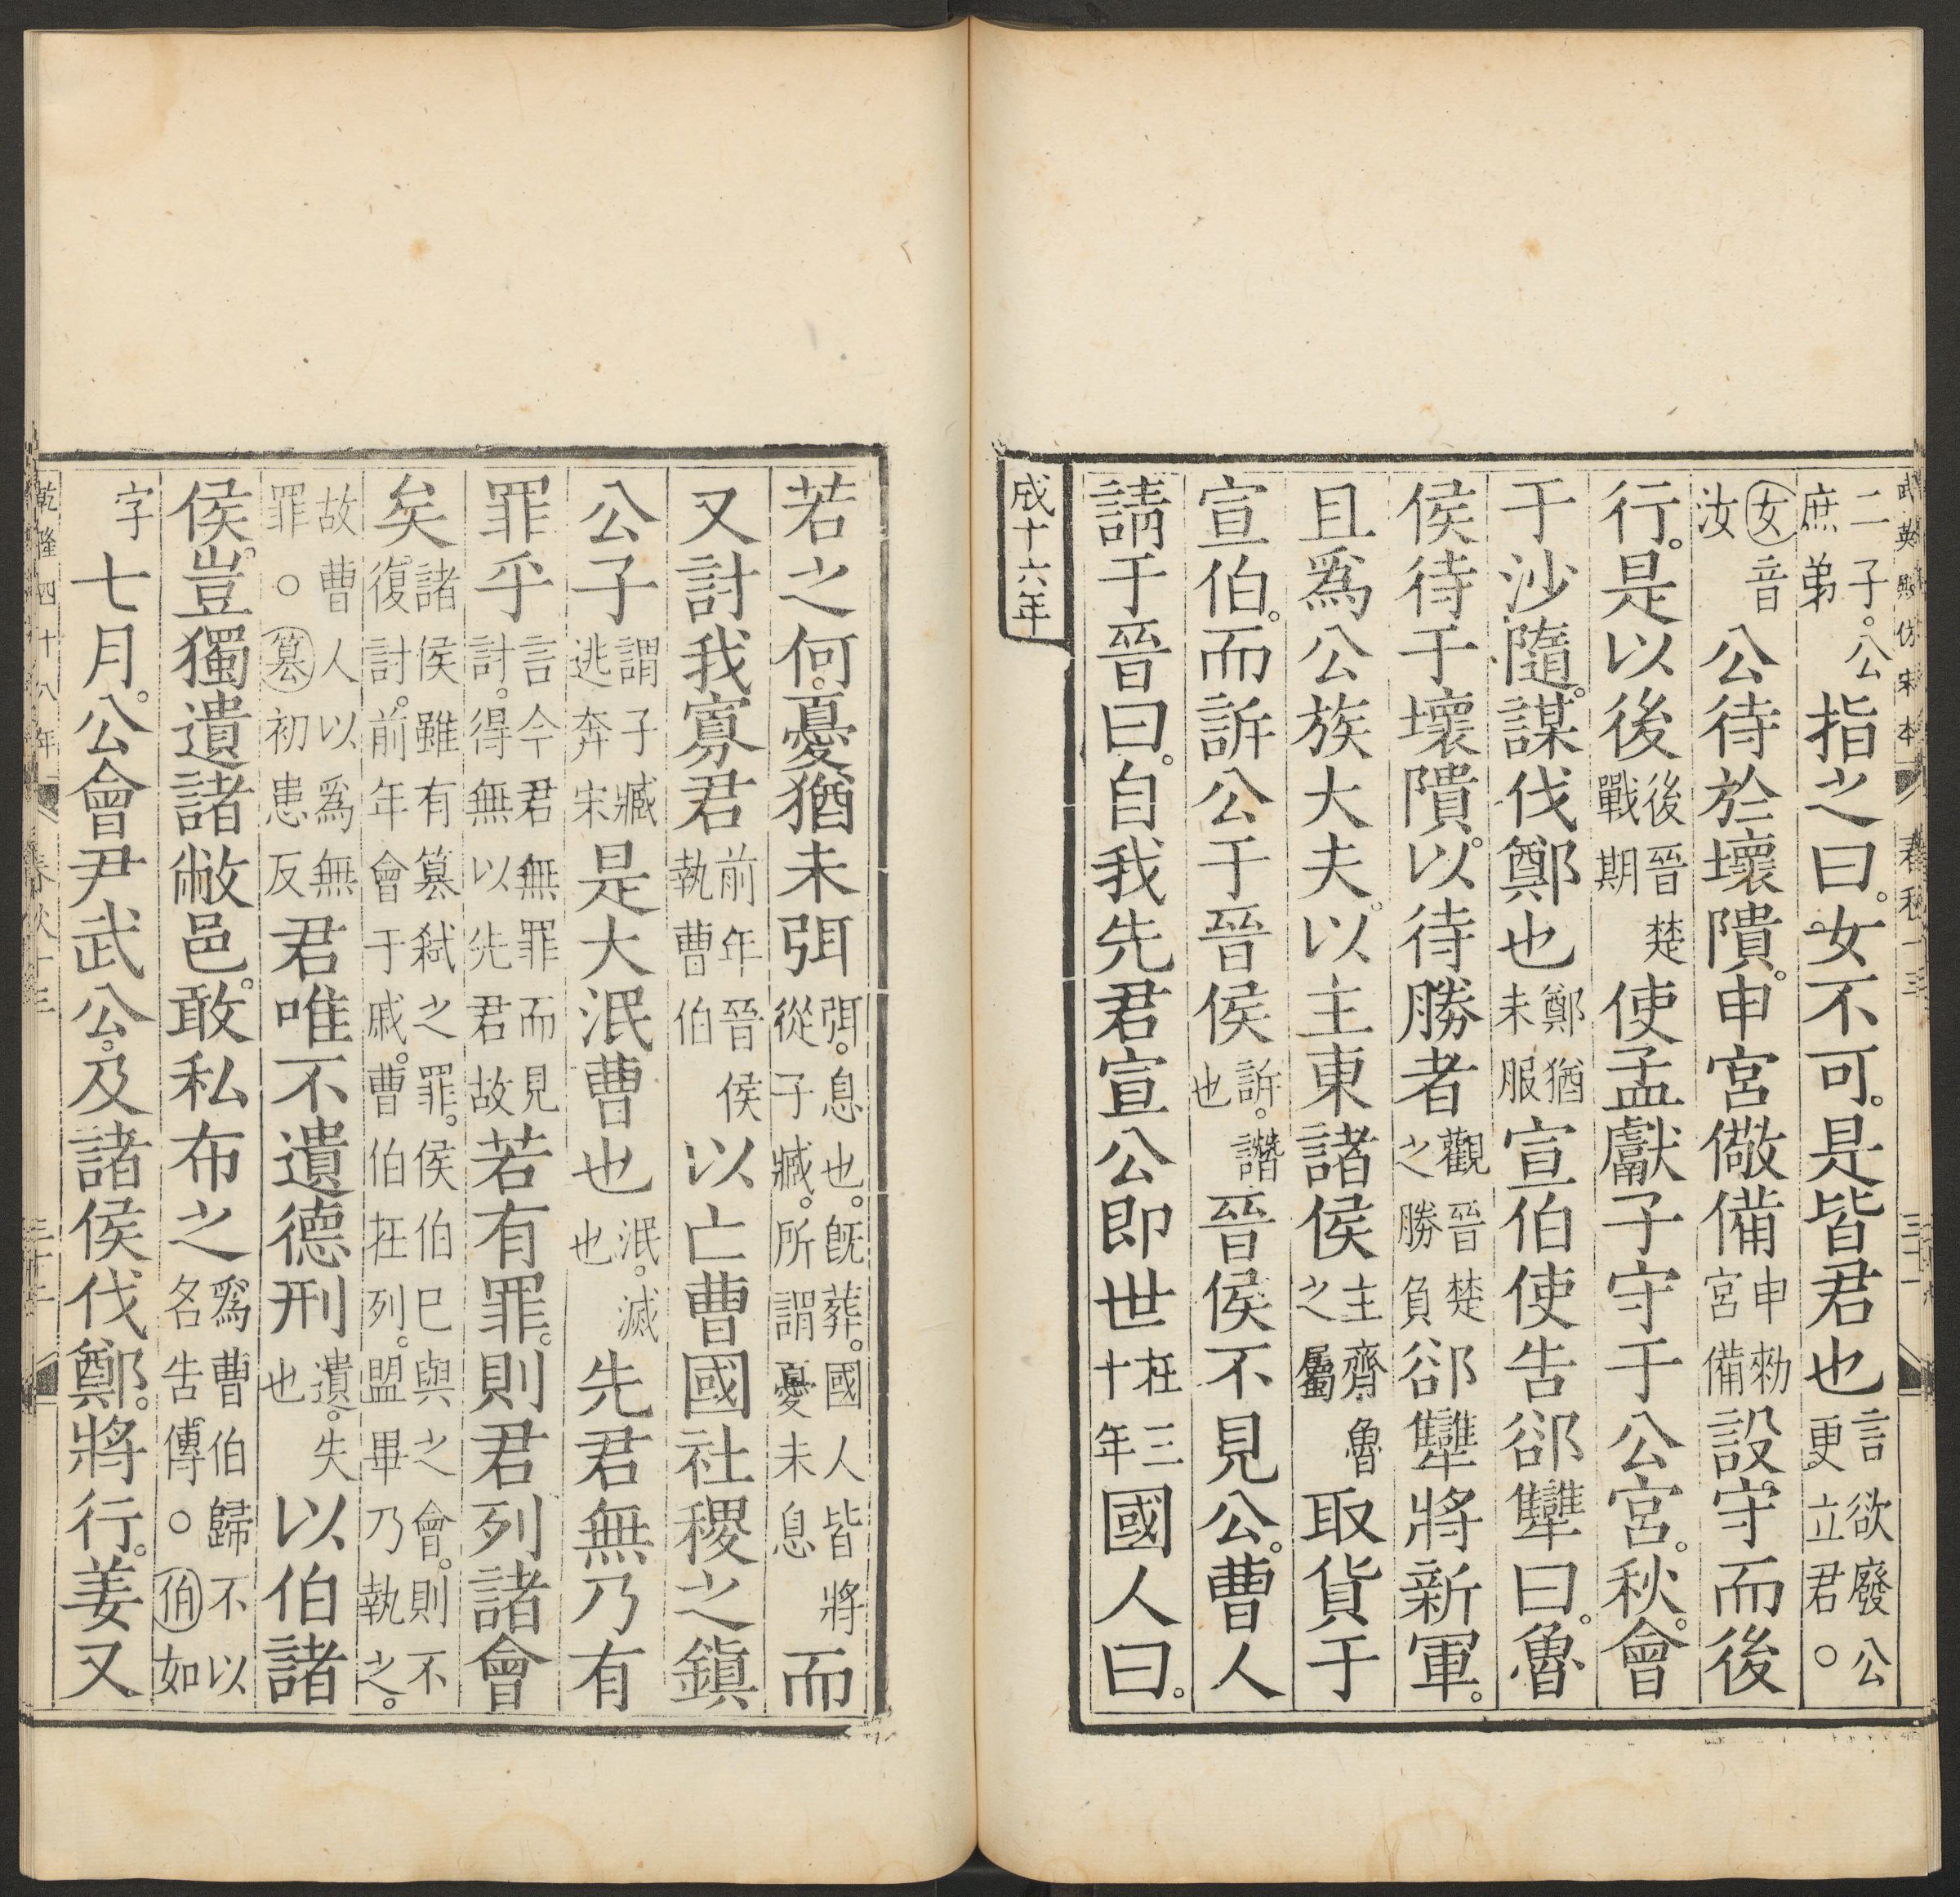 武英殿仿宋本 春秋十三 三十一
二子。公庶弟指之曰。女不可。是皆君也言欲廢公更立君○
女音汝公待於壞隤。申宮儆備申勑宮備設守而後
行。是以後後晉楚戰期使孟獻子守于公宮。秋。會
于沙隨。謀伐鄭也鄭猶未服宣伯使告郤犫曰。魯
侯待于壞隤。以待勝者觀晉楚之勝負郤犫將新軍。
且爲公族大夫。以主東諸侯主齊魯之屬取貨于
宣伯。而訴公于晉侯訴。譖也晉侯不見公。曹人
請于晉曰。自我先君宣公即世在三十年國人曰。
成十六年
若之何。憂猶未弭弭。息也。旣葬。國人皆將從子臧。所謂憂未息而
又討我寡君前年晉侯執曹伯以亡曹國社稷之鎮
公子謂子臧逃奔宋是大泯曹也泯。滅也先君無乃有
罪乎言今君無罪而見討。得無以先君故若有罪。則君列諸會
矣。諸侯雖有篡弒之罪。侯伯已與之會。則不復討。前年會于戚。曹伯在列。盟畢乃執之。
故曹人以爲無罪○篡初患反君唯不遺德刑遺。失也以伯諸
侯。豈獨遺諸敝邑。敢私布之爲曹伯歸不以名告傳○伯如
字七月。公會尹武公。及諸侯伐鄭。將行。姜又
乾隆四十八年 春秋十三 三十二